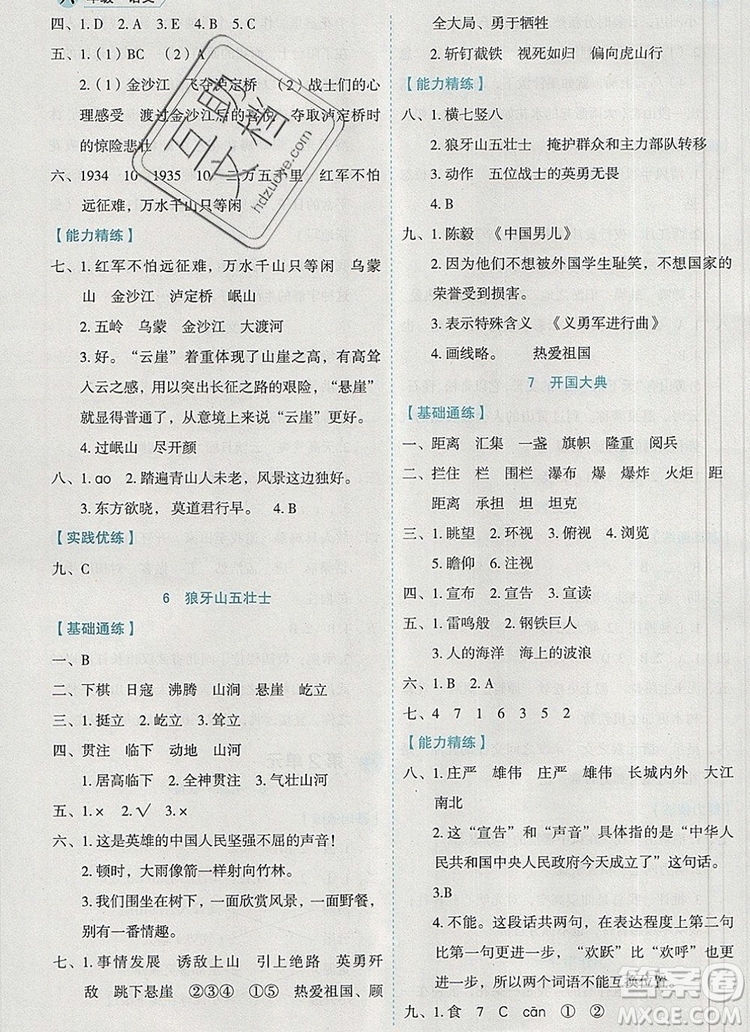 六年级 语文
四、1. D 2. A 3. D 4. B
五、1.（1）BC （2）A
2.（1）金沙江 飞夺泸定桥（2）战士们的心
理感受 渡过金沙江后的喜悦 夺取泸定桥时
的惊险悲壮
六、1934 10 1935 10 二万五千里 红军不怕
远征难，万水千山只等闲
【能力精练】
七、1. 红军不怕远征难，万水千山只等闲 乌蒙
山 金沙江 泸定桥 岷山
2. 五岭 乌蒙 金沙江 大渡河
3. 好。“云崖”着重体现了山崖之高，有高耸
入云之感，突出长征之路的艰险，“悬崖”
则普通多了，从意境上来说“云崖”更好。
4. 过岷山 尽开颜
八、1. ɑo 2. 踏遍青山人未老，风景这边独好。
3. 东方欲晓，莫道君行早。 4. B
【实践优练】
九、C
6 狼牙山五壮士
【基础通练】
一、B
二、下棋 日寇 沸腾 山涧 悬崖 屹立
三、1. 挺立 2. 屹立 3. 耸立
四、贯注 临下 动地 山河
1. 居高临下 2. 全神贯注 3. 气壮山河
五、1. × 2. √ 3. ×
六、1. 这是英雄的中国人民坚强不屈的声音！
2. 顿时，大雨像箭一样地射向竹林。
3. 我们围坐在树下，一面欣赏风景，一面野餐，
别有一番情趣。
七、1. 事情发展 诱敌上山 引上绝路 英勇歼
敌 跳下悬崖 ②③④ ①⑤ 热爱祖国、顾
全大局、勇于牺牲
2. 斩钉截铁 视死如归 偏向虎山行
【能力精练】
八、1. 横七竖八
2. 狼牙山五壮士 掩护群众和主力部队转移
3. 动作 五位战士的英勇无畏
4. B
九、1. 陈毅 《中国男儿》
2. 因为不想被外国学生耻笑，不想国家的
荣誉受到损害。
3. 表示特殊含义 《义勇军进行曲》
4. 画线略。 热爱祖国
7 开国大典
【基础通练】
一、距离 汇集 一盏 旗帜 隆重 阅兵
二、拦住 栏 栏杆 瀑布 爆 爆炸 火炬 距
距离 担 承担 坦 坦克
三、1. 眺望 2. 环视 3. 俯视 4. 浏览
5. 瞻仰 6. 注视
四、1. 宣布 2. 宣告 3. 宣读
五、1. 雷鸣般 2. 钢铁巨人
3. 人的海洋 海上的波浪
六、1. B 2. A
七、4 7 1 6 3 5 2
【能力精练】
八、1. 庄严 雄伟 庄严 雄伟 长城内外 大江
南北
2. 这“宣告”和“声音”具体指的是“中华人
民共和国中央人民政府今天成立了”这句话。
3. B
4. 不能。这段话共两句，在表达程度上第二句
比第一句更进一步，“欢跃”比“欢呼”也更
进一步，所以这两个词语不能互换位置。
九、1. 食 7 C cān ① ②
互助文档
hdzuoye.com
答案圈
MXQE.COM